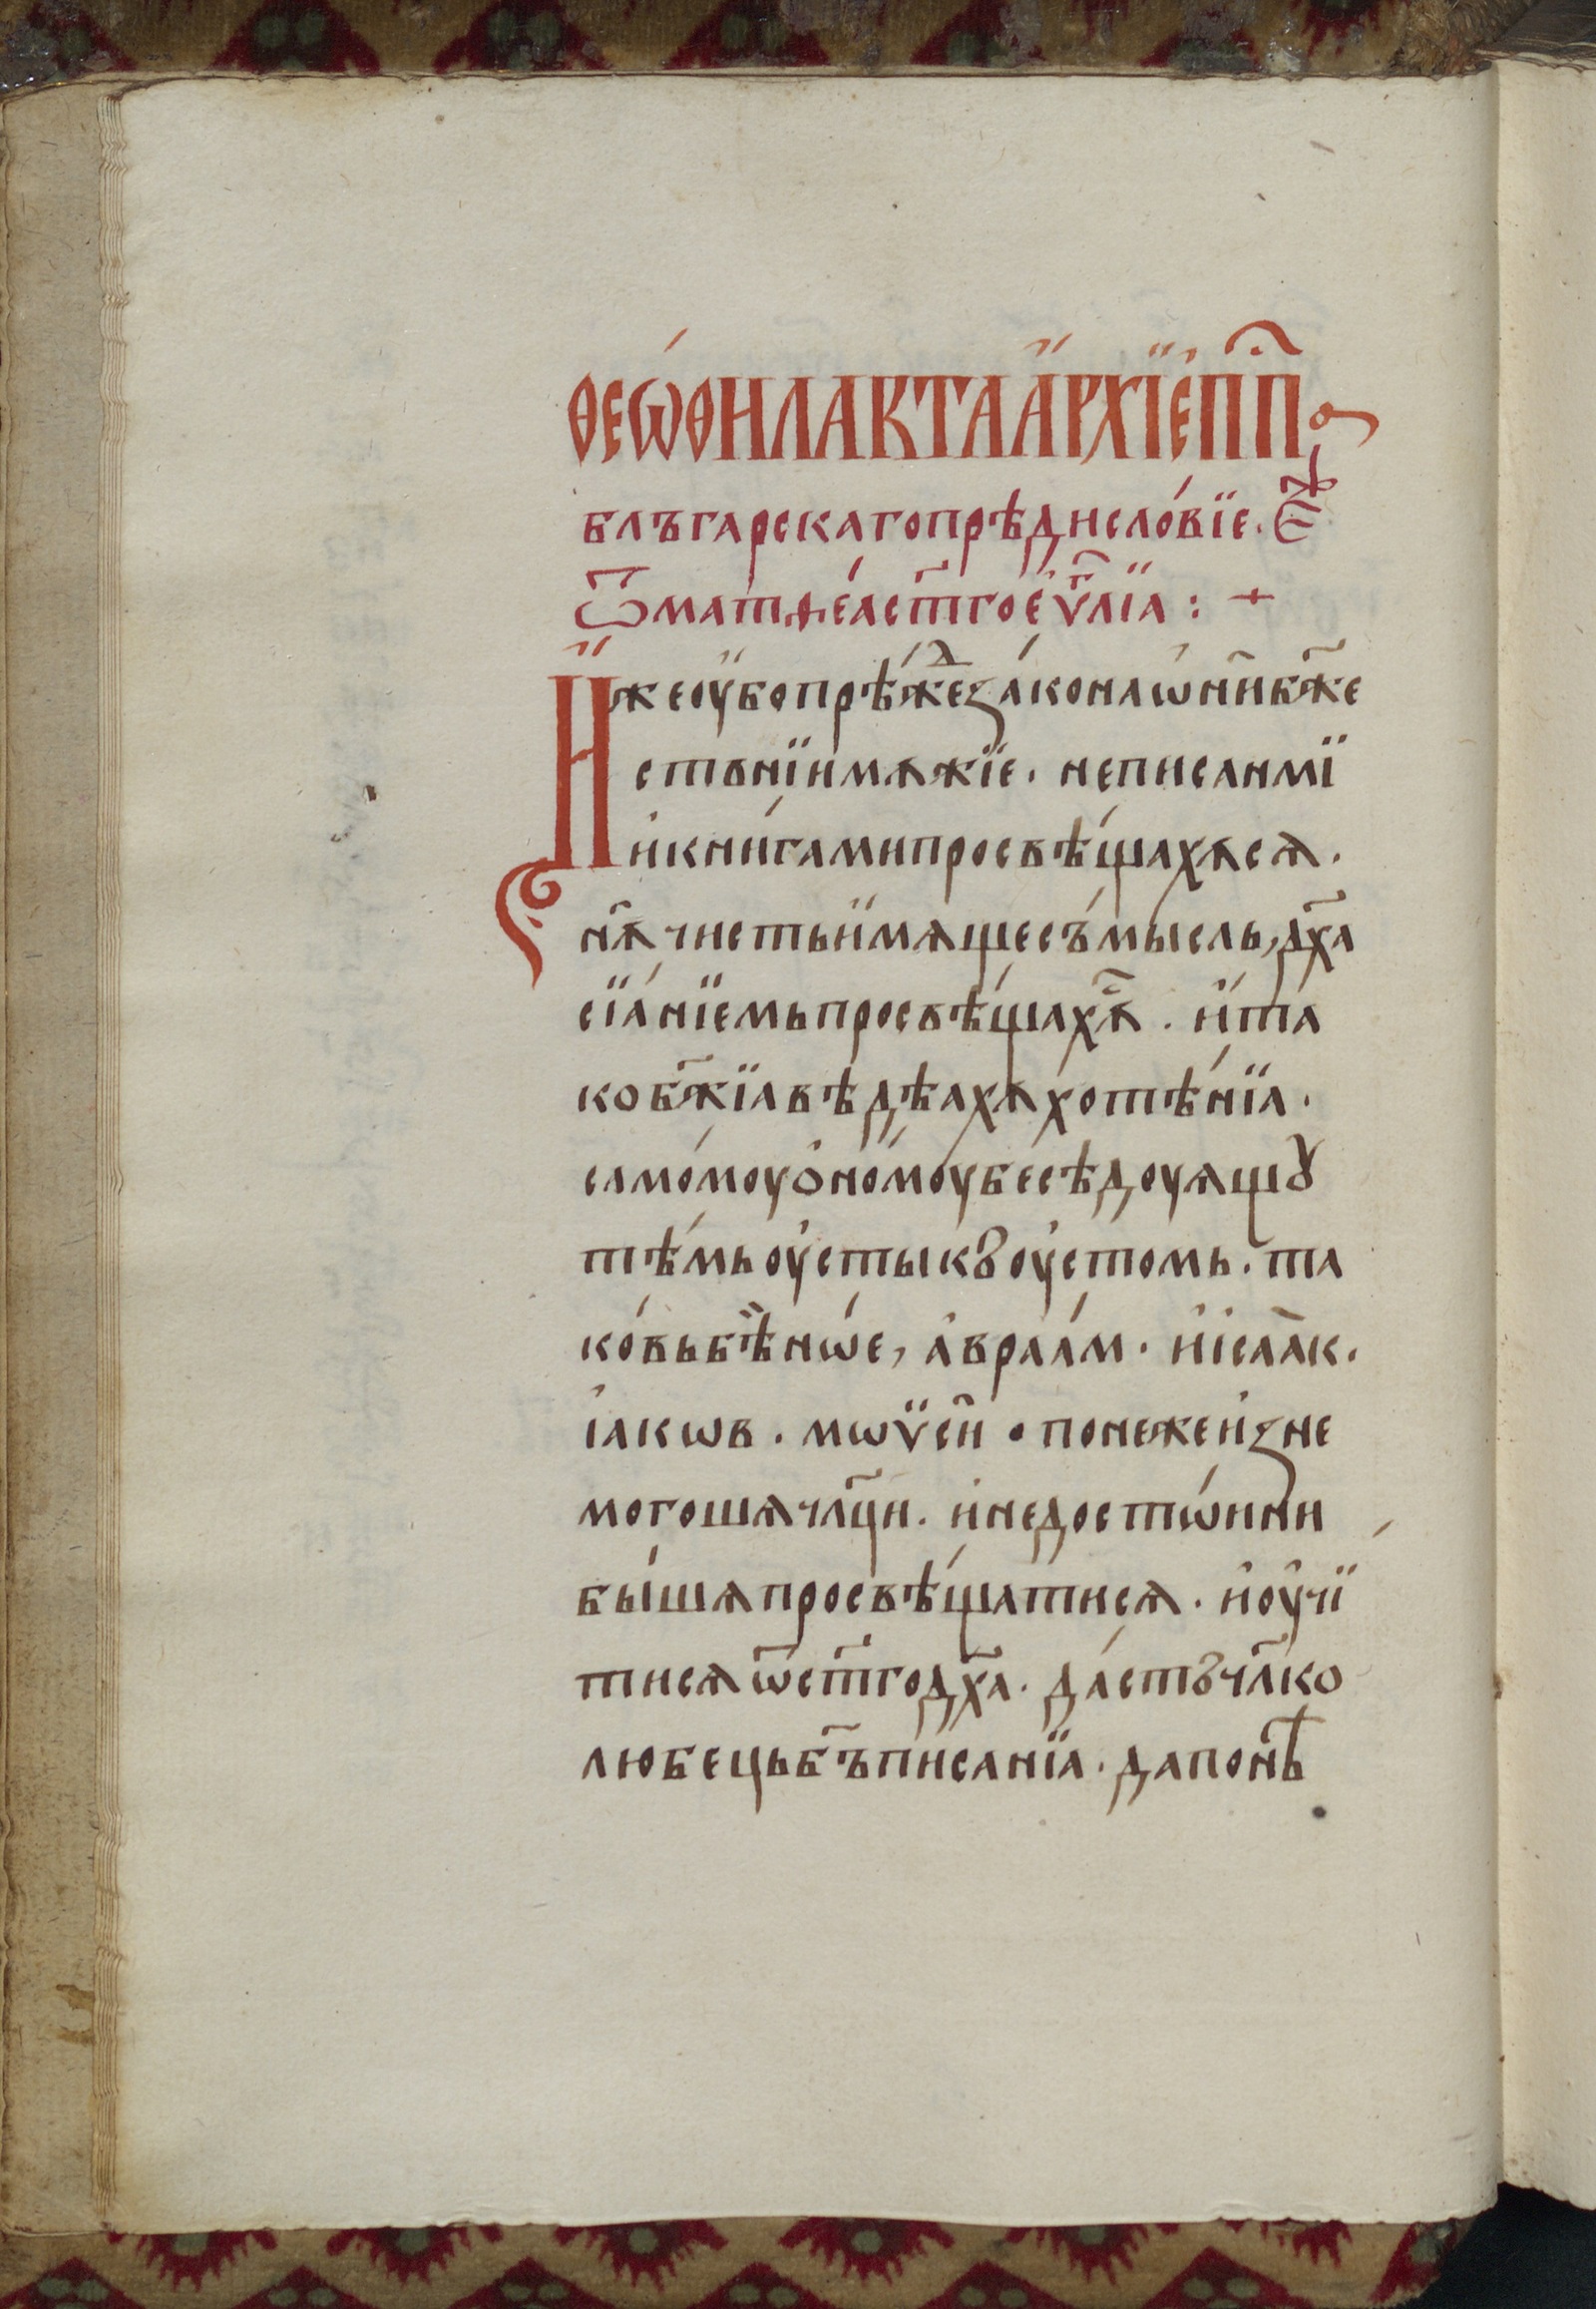 Ѳеѡ́ѳилакта а҆́рхїе҆п҃пⷭ҇а
блъгарскаго прѣдисло́вїе. Еⷤ҇
ѿ матѳе́а ст҃го е҆ѵ҃лїа : +
И҆́же оу҆́бо прѣ́жⷣе за́кона ѡ҆ни҃ бж҃е
ствнїи мѫжїе. не писанмї
и҆ кни́гами просвѣ́щахѫ сѧ.
нѫ҃ чисть и҆мѧще съ́мысль, дх҃а
сїа́нїемь просвѣ́щахѫ҃. и҆́ та
ко бж҃їа вѣдѣахѫ хотѣ́нїа.
само́моу ѻ҆но́моу бесѣдоуѧщꙋ
тѣ́мь оу҆сты къ оу҆стомь. та
ко́вь бѣ̏ нѡ́е, а҆враа́м. и҆ і҆саа҃к.
і҆акѡв. мѡѵ̈си҃. понеже и҆зне
могошѧ чл҃ци. и҆ не достѡ́инни
бы́шѧ просвѣ́щатисѧ. и҆ оу҆чї
тисѧ ѿ ст҃го дх҃а. да́сть чл҃ко
любець бъ҃ писанїа. да понⷷ҇